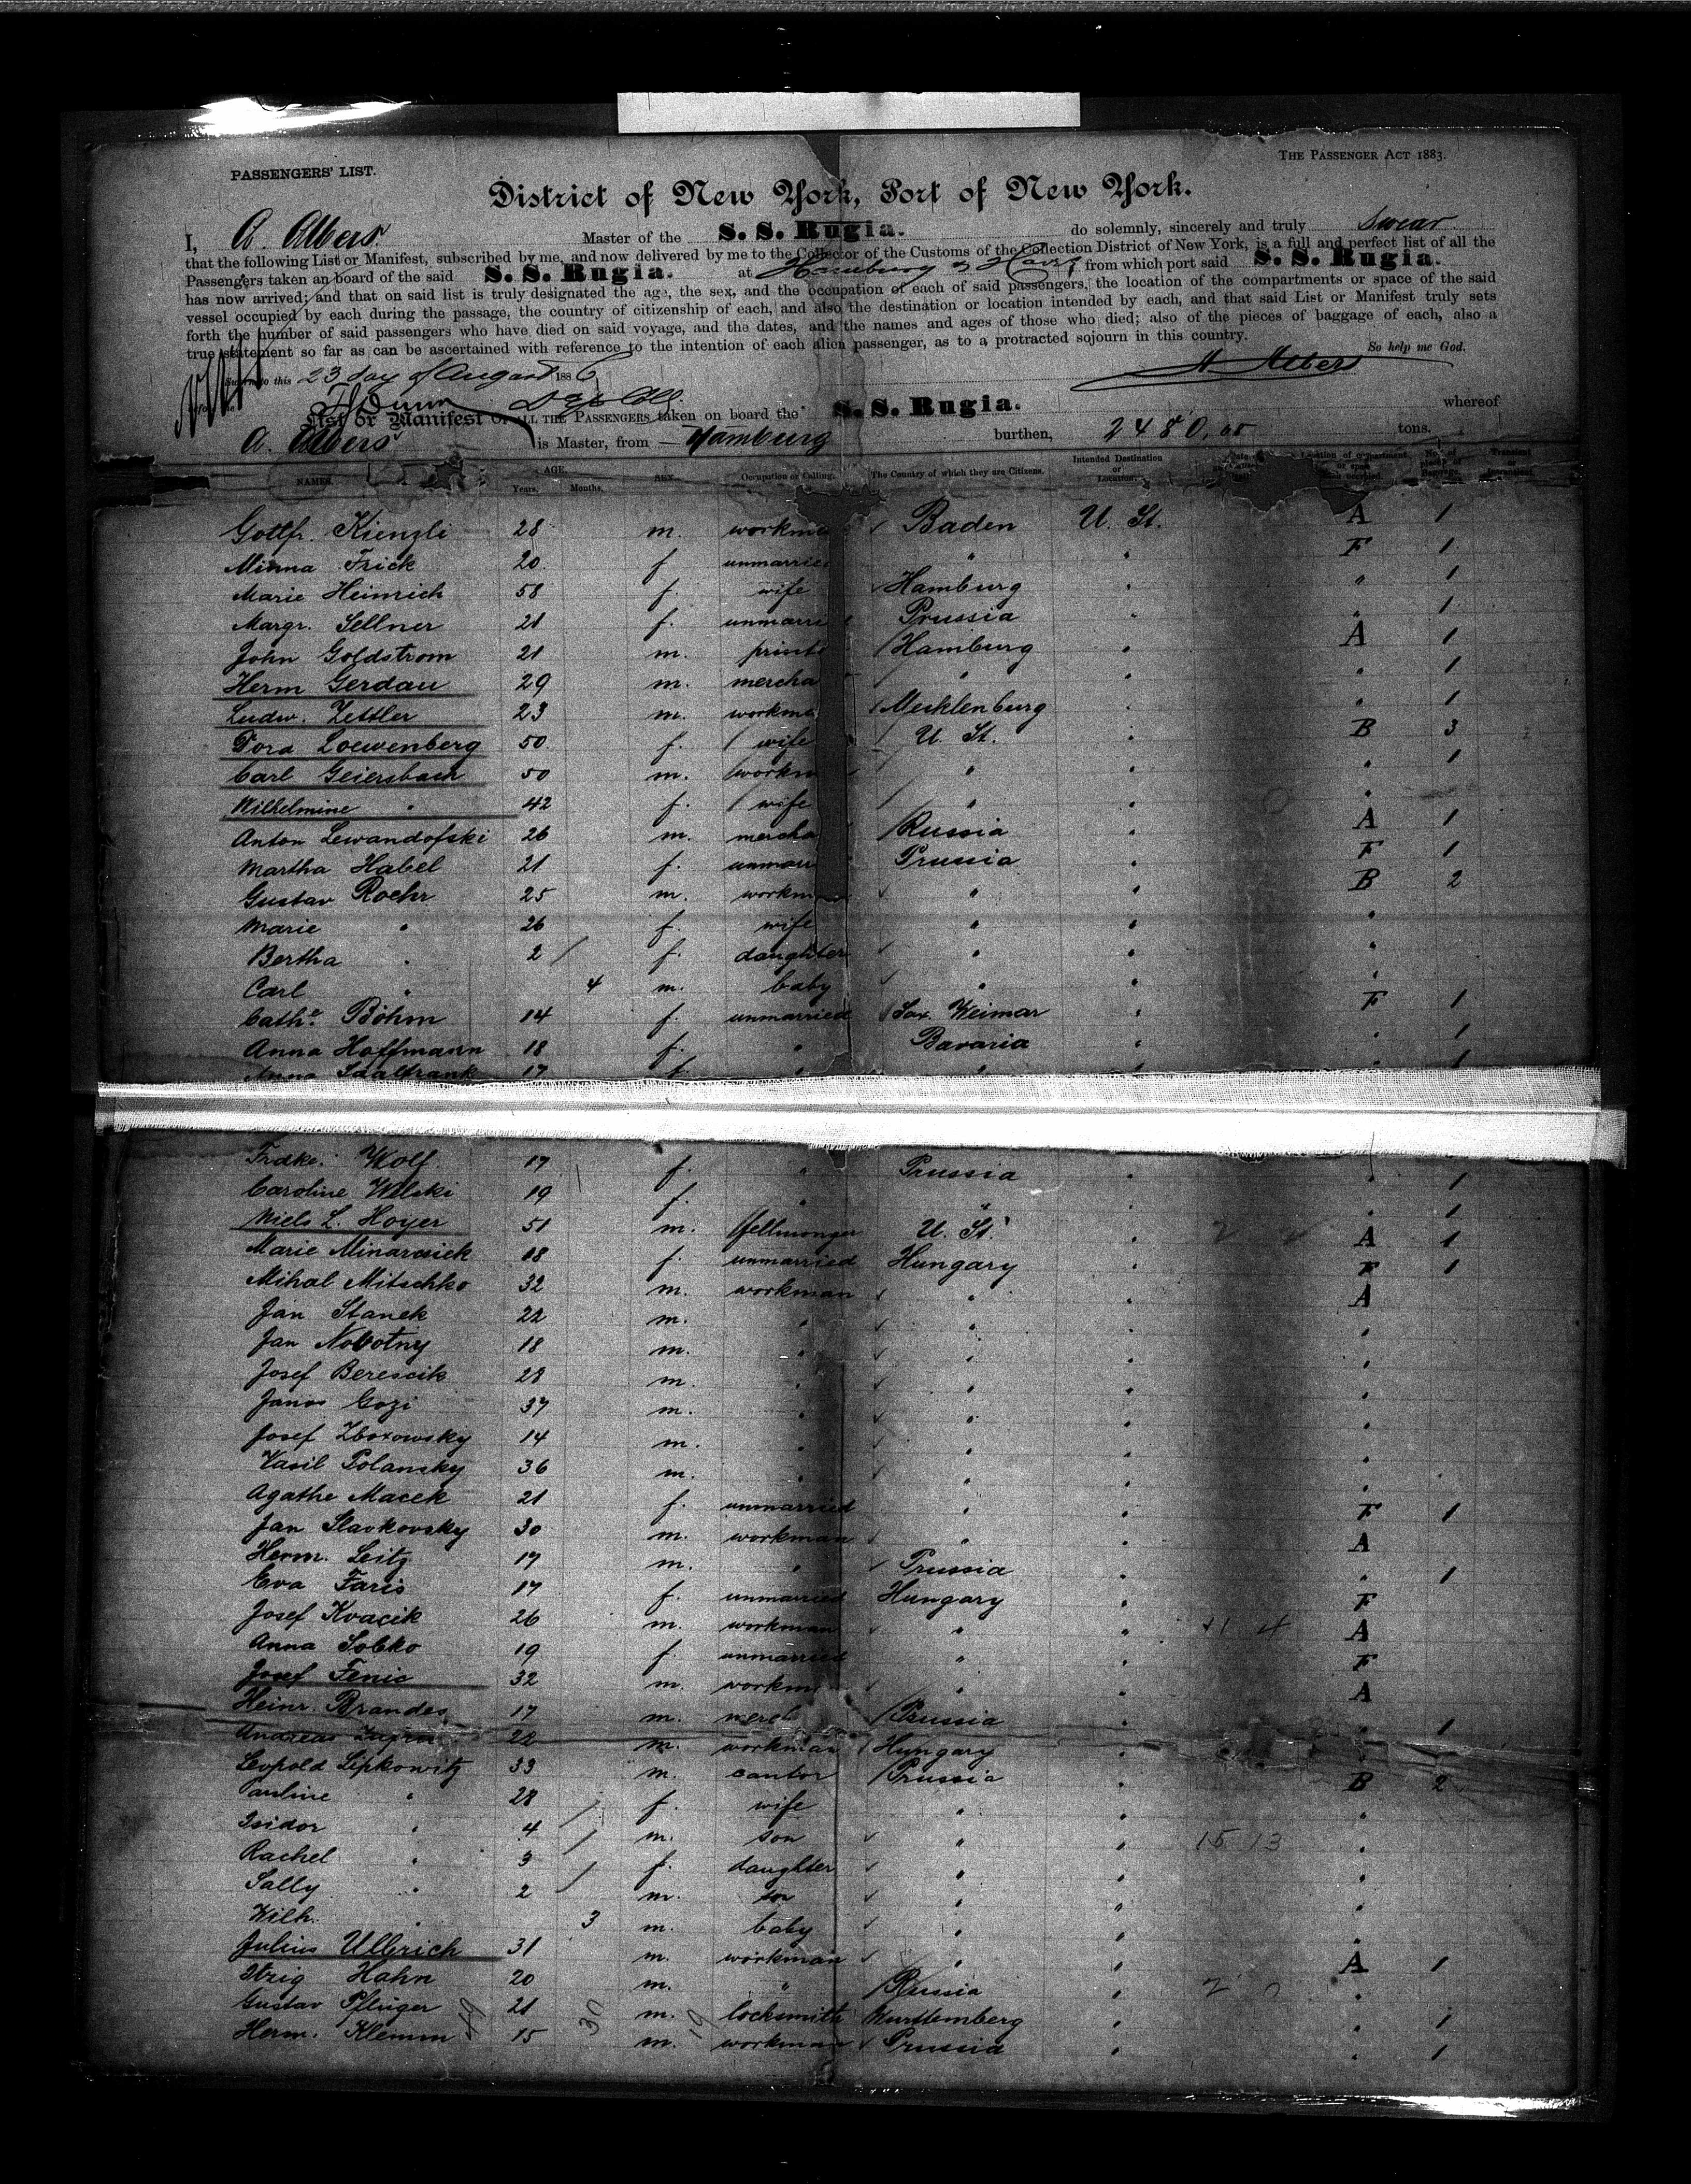 PASSENGERS' LIST.
THE PASSENGER ACT 1883.
District of New York, Port of New York.
I, A. Albers Master of the S. S. Rugia. do solemnly, sincerely and truly swear
that the following List or Manifest, subscribed by me, and now delivered by me to the Collector of the Customs of the Collection District of New York, is a full and perfect list of all the
Passengers taken on board of the said S. S. Rugia. at Hamburg & Havre, from which port said S. S. Rugia.
has now arrived; and that on said list is truly designated the age, the sex, and the occupation of each of said passengers, the location of the compartments or space of the said
vessel occupied by each during the passage, the country of citizenship of each, and also the destination or location intended by each, and that said List or Manifest truly sets
forth the number of said passengers who have died on said voyage, and the dates, and the names and ages of those who died; also of the pieces of baggage of each, also a
true statement so far as can be ascertained with reference to the intention of each alien passenger, as to a protracted sojourn in this country.
So help me God.
Sworn to this 23 day of August 1886
A. Albers
List or Manifest OF ALL THE PASSENGERS taken on board the S. S. Rugia. whereof
A. Albers is Master, from Hamburg burthen, 2480, tons.
NAMES. AGE. Years. Months. SEX. Occupation or Calling. The Country of which they are Citizens. Intended Destination or Location. Location of compartment or space No. of pieces of Baggage. Transient
Gottfr. Kienzli 28 m. workma Baden U. St. A 1
Minna Frick 20 f unmarried " " F 1
Marie Heinrich 58 f. wife Hamburg " " 1
Margr. Sellner 21 f. unmarri Prussia " 1
John Goldstrom 21 m. printe Hamburg " A 1
Herm Gerdau 29 m. mercha " " " 1
Ludw. Zettler 23 m. workma Mecklenburg " " 1
Dora Loewenberg 50 f. wife U. St. " B 3
Carl Geiersbach 50 m. workm " " " 1
Wilhelmine " 42 f. wife " " "
Anton Lewandofski 26 m. mercha Russia " A 1
Martha Habel 21 f. unmarr Prussia " F 1
Gustav Roehr 25 m. workm " " B 2
Marie " 26 f. wife " " "
Bertha " 2 f. daughter " " "
Carl " 4 m. baby " " "
Cathe. Böhm 14 f. unmarried Sax. Weimar " F 1
Anna Hoffmann 18 f. " Bavaria " " 1
Anna Saalfrank 17 f. " " " " 1
Frdke. Wolf 17 f. " Prussia " " 1
Caroline Wilski 19 f. " " " 1
Niels L. Hoyer 51 m. fellmonger U. St. " A 1
Marie Minarcsick 18 f. unmarried Hungary " F 1
Mihal Mitschko 32 m. workman " " A
Jan Stanek 22 m. " " " "
Jan Nobotny 18 m. " " " "
Josef Berescik 28 m. " " " "
Janos Gozi 37 m. " " " "
Josef Zboxowsky 14 m. " " " "
Vasil Polansky 36 m. " " " "
Agathe Macek 21 f. unmarried " " F 1
Jan Slavkovsky 30 m. workman " " A
Herm. Seitz 17 m. " Prussia " " 1
Eva Faris 17 f. unmarried Hungary " F
Josef Kvacik 26 m. workman " " A
Anna Sobko 19 f. unmarried " " F
Josef Fenic 32 m. workm " " A
Heinr. Brandes 17 m. merch Prussia " " 1
Andreas 22 m. workman Hungary "
Leopold Lipkowitz 33 m. cantor Prussia " B 2
Pauline " 28 f. wife " " "
Isidor " 4 m. son " " 15 13 "
Rachel " 3 f. daughter " " "
Sally " 2 m. son " " "
Wilh. " 3 m. baby " " "
Julius Ullrich 31 m. workman " " A 1
Itzig Hahn 20 m. " Russia " "
Gustav Pfluger 21 m. locksmith Wurttemberg " " 1
Herm. Klemm 15 m. workman Prussia " " 1
49 30 19